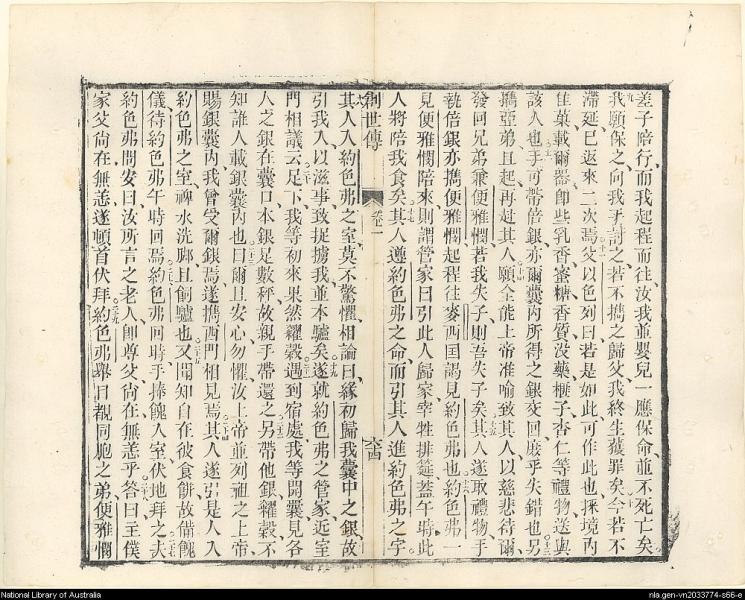 差子陪行而我起程而往汝我並嬰兒一應保命並不死亡矣
我願保之向我手討之若不攜之歸父我終生獲罪矣今若不
滯延已返來二次焉父以色列曰若是如此可作此也採境內
佳菓載爾器即些乳香蜜糖香質沒藥榧子杏仁等禮物送與
該人也手可帶倍銀亦爾囊內所得之銀交回廢乎失錯也另
攜亞弟且起再赴其人願全能上帝准喻致其人以慈悲待爾
發回兄弟兼便雅憫若我失子則吾失子矣其人遂取禮物手
執倍銀亦攜便雅憫起程往麥西囯謁見約色弗也約色弗一
見便雅憫陪來則謂管家曰引此人歸家宰牲排筵葢午時此
人將陪我食矣其人遵約色弗之命而引其人進約色弗之宇
創世傳 卷一
其人入約色弗之室莫不驚懼相論曰緣初歸我囊中之銀故
引我入以滋事致捉擄我並本驢矣遂就約色弗之管家近室
門相議云足下我等初來果然糴穀遇到宿處我等開囊見各
人之銀在囊口本銀足數秤故親手帶還之另帶他銀糴穀不
知誰人載銀囊內也曰爾且安心勿懼汝上帝並列祖之上帝
賜銀囊內我曾受爾銀焉遂攜西門相見焉其人遂引是人入
約色弗之室裨水洗脚且飼驢也又聞知自在彼食餅故備餽
儀待約色弗午時回焉約色弗回時手捧餽入室伏地拜之夫
約色弗問安曰汝所言之老人卽尊父尚在無恙乎答曰主僕
家父尚在無恙遂頓首伏拜約色弗舉目覩同胞之弟便雅憫
National Library of Australia
nla.gen-vn2033774-s66-e